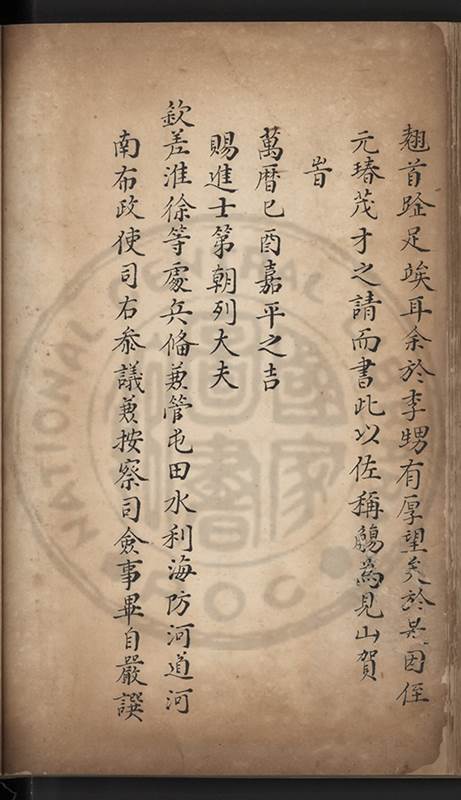 翹首跧足竢耳余於李甥有厚望矣於是因侄
元瑃茂才之請而書此以佐稱觴為見山賀
旹
萬曆己酉嘉平之吉
賜進士第朝列大夫
欽差淮徐等處兵俻兼管屯田水利海防河道河
南布政使司右叅議兼按察司僉事畢自嚴譔
NATIONAL CENTRAL